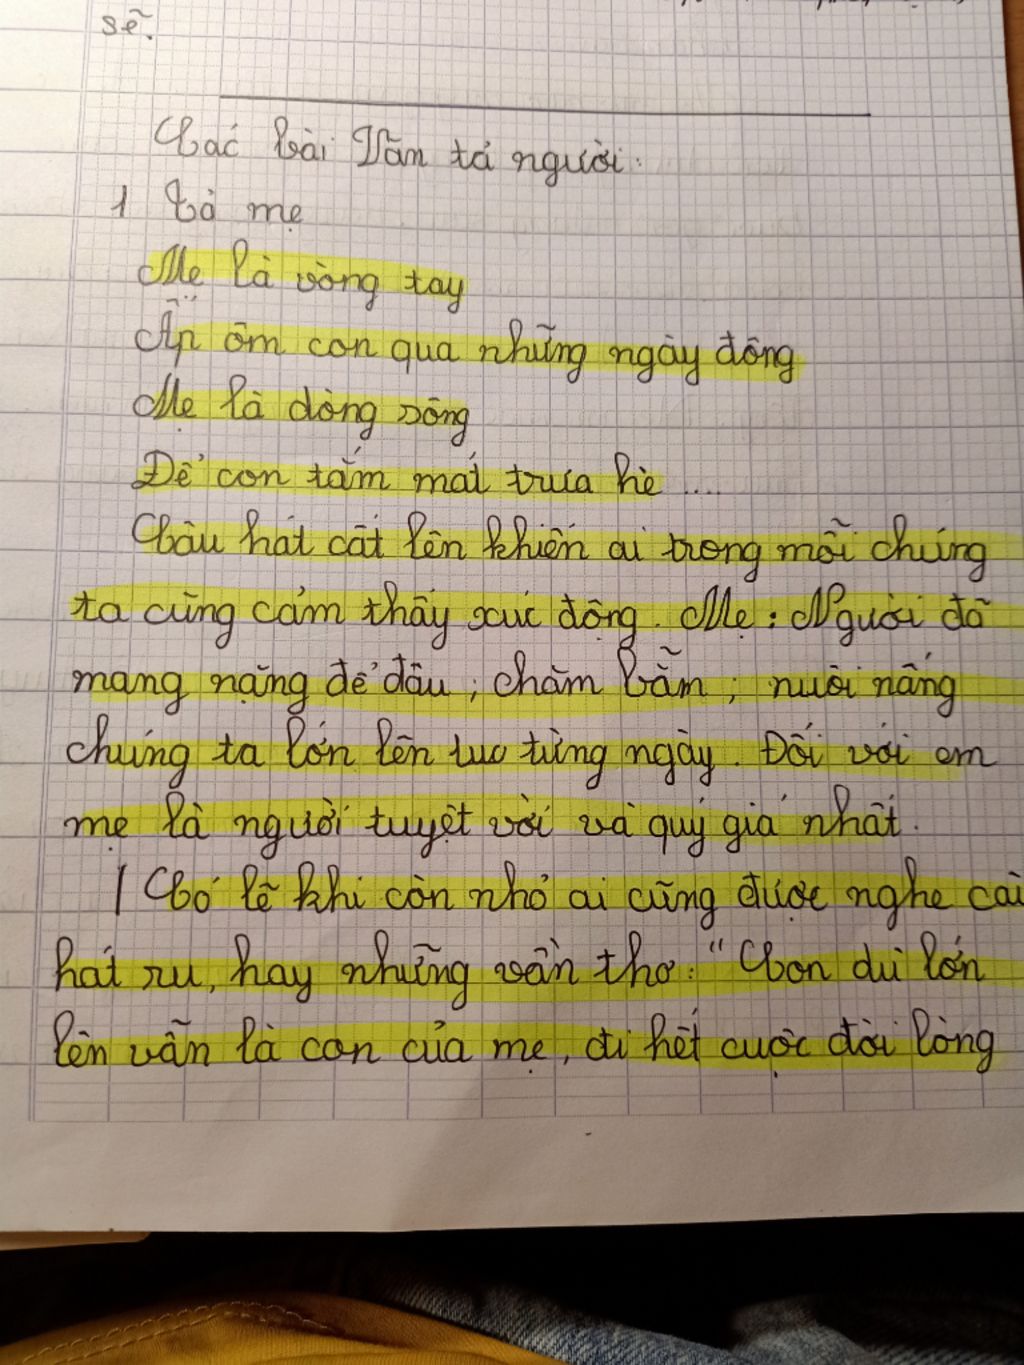 sẽ.
Các bài Văn tả người.
1 Tả mẹ
Mẹ là vòng tay
Ấp ôm con qua những ngày đông
Mẹ là dòng sông
Để con tắm mát trưa hè ....
Câu hát cất lên khiến ai trong mỗi chúng
ta cũng cảm thấy xúc động. Mẹ: Người đã
mang nặng đẻ đâu; chăm bẵm; nuôi nấng
chúng ta lớn lên từng ngày. Đối với em
mẹ là người tuyệt vời và quý giá nhất.
Có lẽ khi còn nhỏ ai cũng được nghe cai
hát ru, hay những vần thơ: "Con dù lớn
lên vẫn là con của mẹ, đi hết cuộc đời lòng